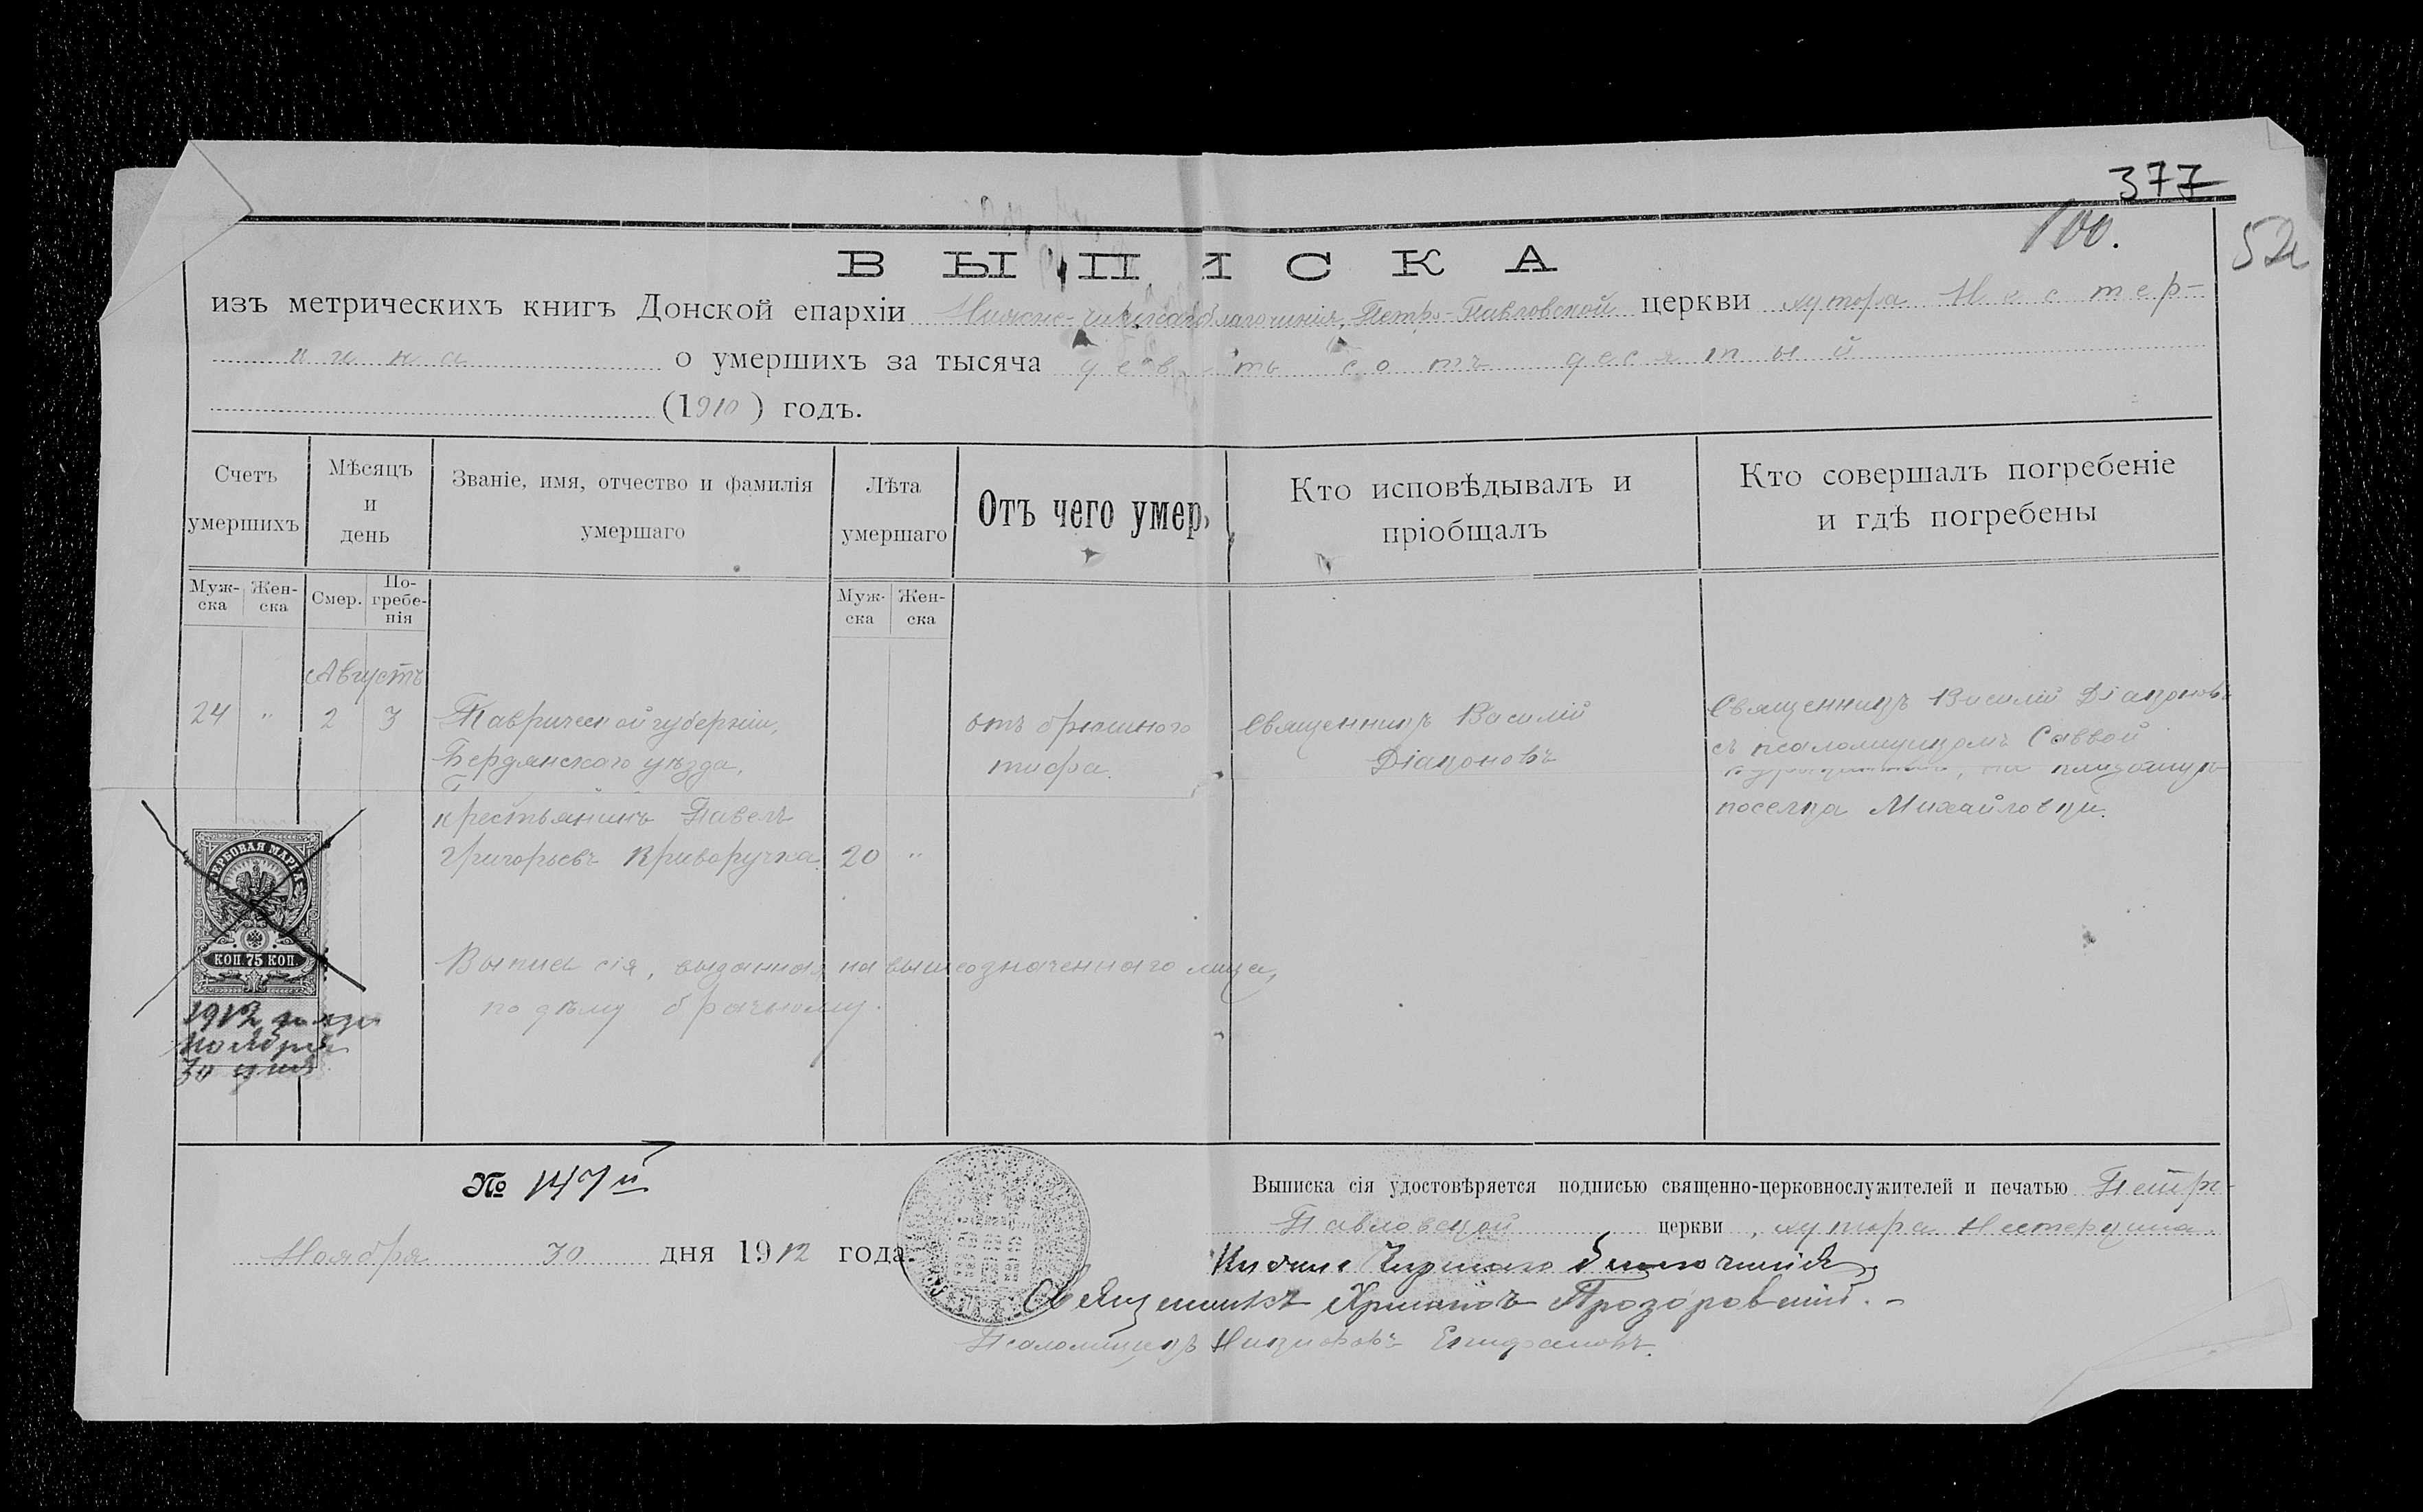 377
100.
52
ВЫПИСКА
изъ метрическихъ книгъ Донской епархіи Нижне-Чирскаго благочинія, Петро-Павловской церкви хутора Нестер-
кина о умершихъ за тысяча девятьсотъ десятый
(1910) годъ.
Счетъ умершихъ
Мѣсяцъ и день
Званіе, имя, отчество и фамилія умершаго
Лѣта умершаго
Отъ чего умер.
Кто исповѣдывалъ и пріобщалъ
Кто совершалъ погребеніе и гдѣ погребены
Муж-ска Жен-ска Смер. По-гребе-нія Муж-ска Жен-ска
Августъ
24 " 2 3 Таврической губерніи,
Бердянскаго уѣзда,
крестьянинъ Павелъ
Григорьевъ Криворучка. 20 "
отъ брюшного
тифа.
Священникъ Василій
Діаконовъ
Священникъ Василій Діаконовъ
съ псаломщикомъ Саввой
, на кладбищѣ
поселка Михайловки.
Выпись сія, выданная на вышеозначеннаго лица,
по дѣлу брачному.
ГЕРБОВАЯ МАРКА
КОП. 75 КОП.
1912 года
Ноября
30 дня
№ 147й
Ноября 30 дня 1912 года.
Выписка сія удостовѣряется подписью священно-церковнослужителей и печатью Петро-
Павловской церкви, хутора Нестеркина.
Нижне Чирскаго благочинія
Священникъ Прозоровскій.
Псаломщикъ Никифоръ Епифановъ.